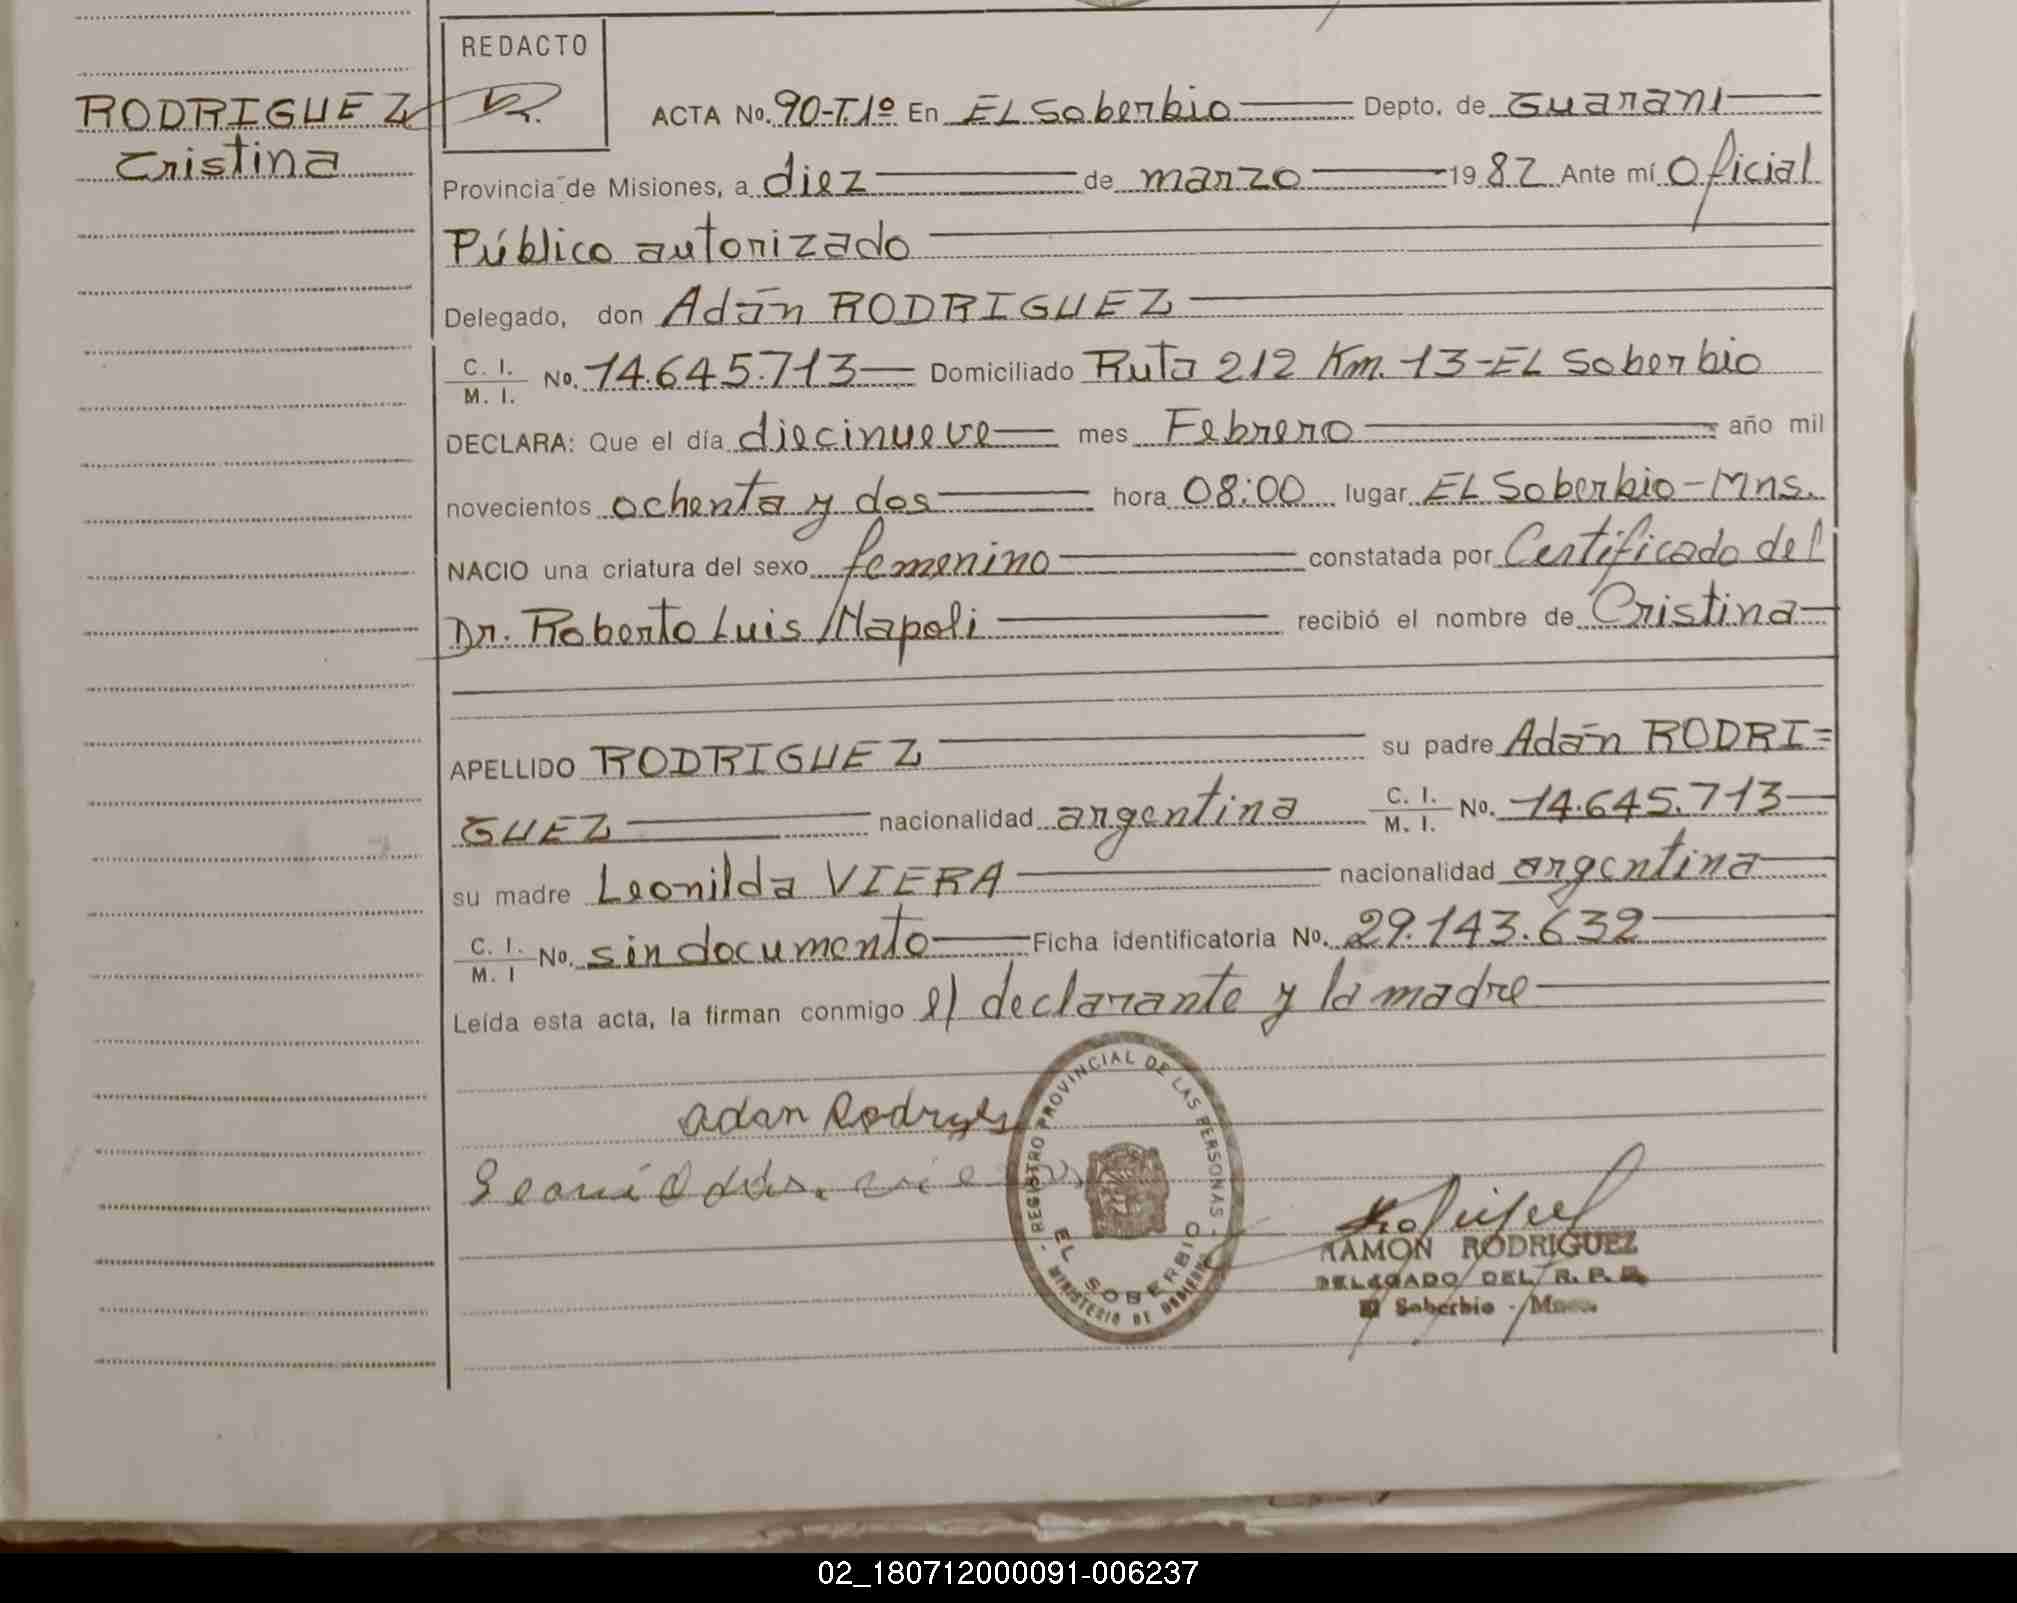 REDACTO
RODRIGUEZ
Cristina
ACTA No. 90-T.1º En EL Soberbio Depto. de Guarani
Provincia de Misiones, a diez de marzo 1982 Ante mí Oficial
Público autorizado
Delegado, don Adán RODRIGUEZ
C. I.
M. I. No. 14.645.713 Domiciliado Ruta 212 Km. 13-EL Soberbio
DECLARA: Que el día diecinueve mes Febrero año mil
novecientos ochenta y dos hora 08:00 lugar EL Soberbio-Mns.
NACIO una criatura del sexo femenino constatada por Certificado del
Dr. Roberto Luis Napoli recibió el nombre de Cristina
APELLIDO RODRIGUEZ su padre Adán RODRI=
GUEZ nacionalidad argentina C. I. M. I. No. 14.645.713
su madre Leonilda VIERA nacionalidad argentina
C. I. M. I No. sin documento Ficha identificatoria No. 29.143.632
Leída esta acta, la firman conmigo el declarante y la madre
adan Rodrges
REGISTRO PROVINCIAL DE LAS PERSONAS
EL SOBERBIO
MINISTERIO DE GOBIERNO
RAMON RODRIGUEZ
DELEGADO DEL R. P. P.
El Soberbio - Mnes.
02_180712000091-006237